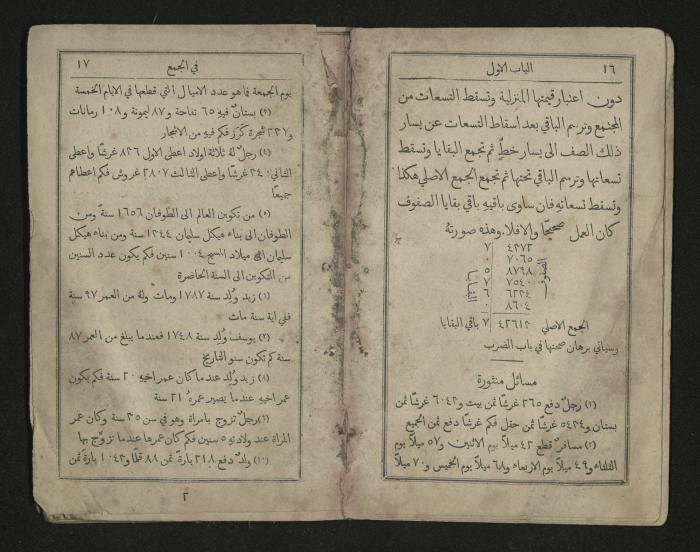 ١٦ الباب الاول
دون اعتبار قيمتها المنزلية وتسقط التسعات من
المجتمع وترسم الباقي بعد اسقاط التسعات عن يسار
ذلك الصف الى يسار خطٍّ ثم تجمع البقايا وتسقط
تسعاتها وترسم الباقي تحتها ثم تجمع الجمع الاصلي هكذا
وتسقط تسعاته فان ساوى باقيه باقي بقايا الصفوف
كان العمل صحيحًا والا فلا. وهذه صورته
٤٢٧٣ ٧
٧٠٦٥ ٠
٨٧٩٨ ٥
٧٥٤٠ ٧
٦٢٣٤ ٦
٨٦٠٤ ٠
الصفوف
البقايا
الجمع الاصلي ٤٢٦١٢ ٧ باقي البقايا
وسياتي برهان صحتها في باب الضرب
مسائل منثورة
(١) رجلٌ دفع ٢٦٥ غرشًا ثمن بيت و٦٠٤٢ غرشًا ثمن
بستان و٥٤٢٤ غرشًا ثمن حقل فكم غرشًا دفع ثمن الجميع
(٢) مسافرٌ قطع ٤٢ ميلًا يوم الاثنين و٥٧ ميلًا يوم
الثلثاء و٤٩ ميلًا يوم الاربعاء و٦٨ ميلًا يوم الخميس و٧٠ ميلًا
في الجمع ١٧
يوم الجمعة فما هو عدد الاميال التي قطعها في الايام الخمسة
(٣) بستانٌ فيه ٦٥ تفاحة و٨٧ ليمونة و١٠٨ رمانات
و٢٢٧ شجرة كَرَز فكم فيه من الاشجار
(٤) رجلٌ له ثلاثة اولاد اعطى الاول ٨٣٦ غرشًا واعطى
الثاني غرشًا واعطى الثالث ٢٨٠٧ غروش فكم اعطاهم
جميعًا
(٥) من تكوين العالم الى الطوفان ١٦٥٦ سنة ومن
الطوفان الى بناء هيكل سليمان ١٣٤٤ سنة ومن بناء هيكل
سليمان الى ميلاد المسيح ١٠٠٤ سنين فكم يكون عدد السنين
من التكوين الى السنة الحاضرة
(٦) زيد وُلِد سنة ١٧٨٧ ومات وله من العمر ٩٧ سنة
ففي اية سنة مات
(٧) يوسف وُلِد سنة ١٧٤٨ فعندما يبلغ من العمر ٨٧
سنة كم تكون سنو التاريخ
(٨) زيد وُلِد عندما كان عمر اخيه ٢٠ سنة فكم يكون
عمر اخيه عندما يصير عمرهُ ٢١ سنة
(٩) رجلٌ تزوج بامراة وهو في سن ٢٥ سنة وكان عمر
المراة عند ولادتهِ ٥ سنين فكم كان عمرها عندما تزوَّج بها
(١٠) ولدٌ دفع ٢١٨ بارة ثمن ٨٨ قلمًا و١٠٤٢ بارة ثمن
٢